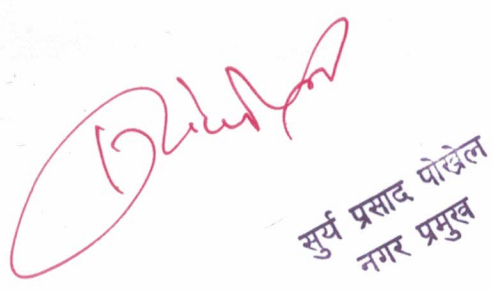 सुर्य प्रसाद पोखेल
नगर प्रमुख